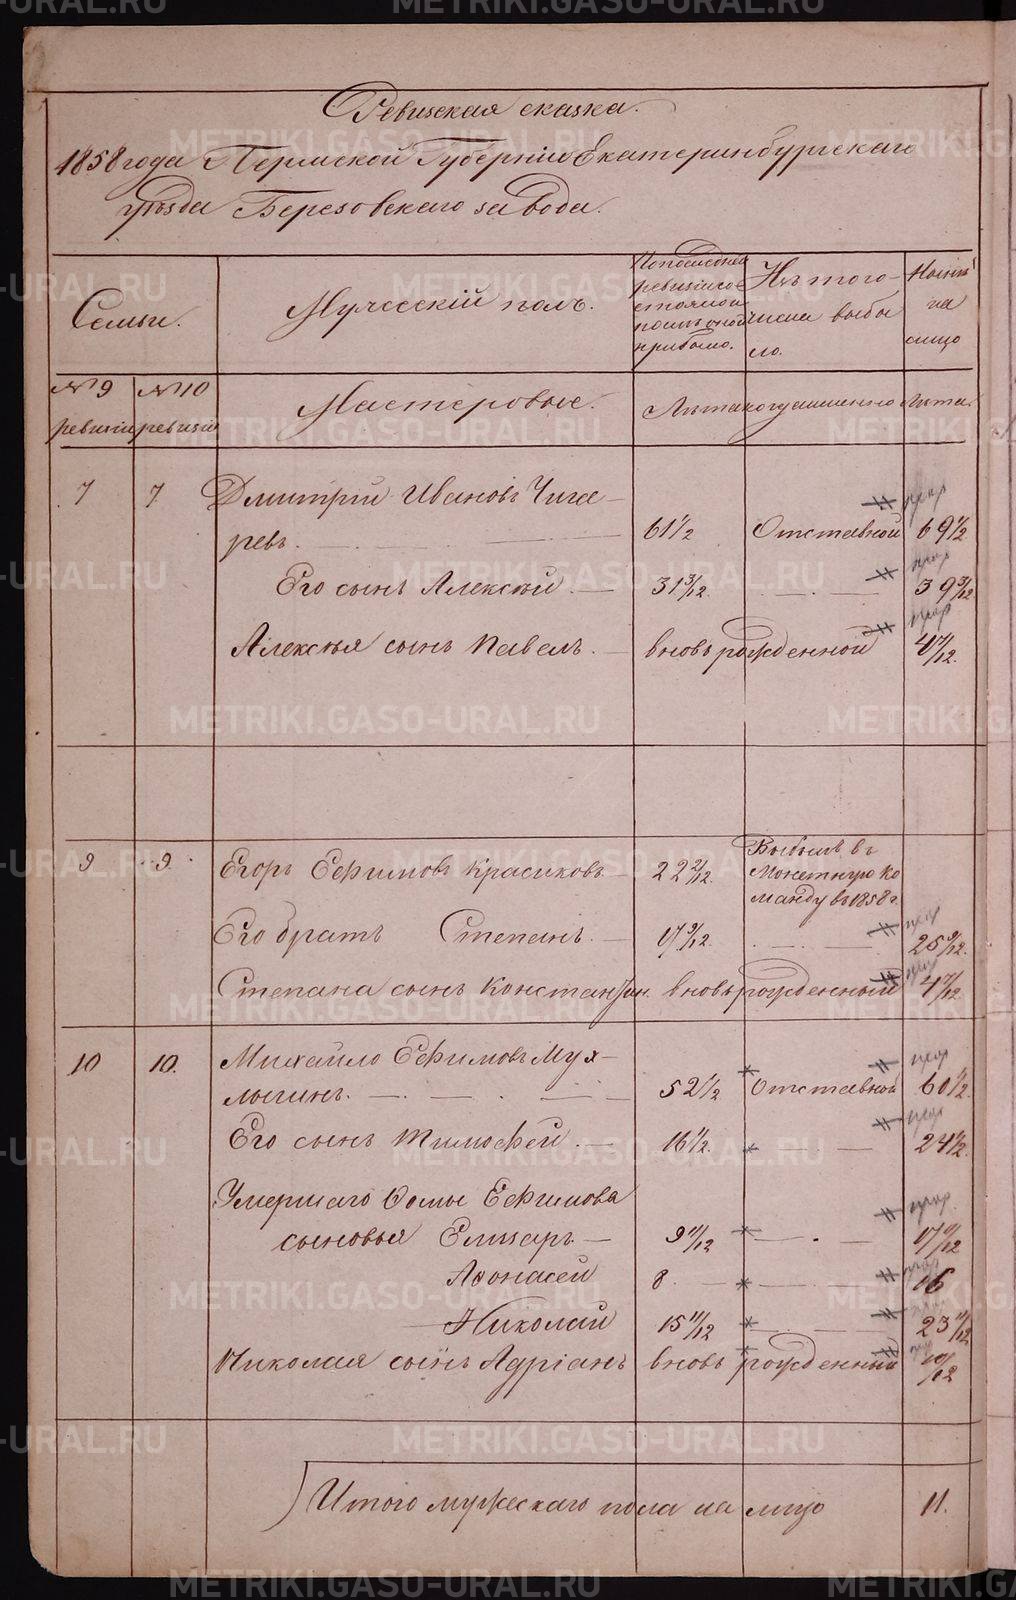 Ревизская сказка.
1858 года Пермской Губерніи Екатеринбургскаго
уѣзда Березовскаго завода.
Семьи.
Мужескій полъ.
По последней ревизіи состояло и послѣ оной прибыло.
Изъ того числа выбыло.
Нынѣ на лицо
№ 9 ревизіи
№ 10 ревизіи
Мастеровые.
Лѣта
когда именно
Лѣта.
7 7. Дмитрій Ивановъ Чига-
ревъ. 61 1/2 Отставной 69 1/2
Его сынъ Алексѣй. 31 3/12 39 3/12
Алексѣя сынъ Павелъ. вновь рожденной
9 9. Егоръ Ефимовъ Красиковъ 22 2/12. Выбылъ въ
Монетную Ко
манду въ 1858 г.
Его братъ Степанъ. 17 9/12. 25 9/12.
Степана сынъ Константин. вновь рожденный
10 10. Михайло Ефимовъ Мух-
лынинъ. 52 1/2 Отставной 60 1/2
Его сынъ Тимофей. 16 1/2. 24 1/2.
Умершаго Фомы Ефимова
сыновья Елизаръ 9 11/12 17 11/12
Афонасей 8. 16
Николай 15 11/12 23 11/12
Николая сынъ Адріанъ вновь рожденный 10/12
Итого мужескаго пола на лицо 11.
METRIKI.GASO-URAL.RU